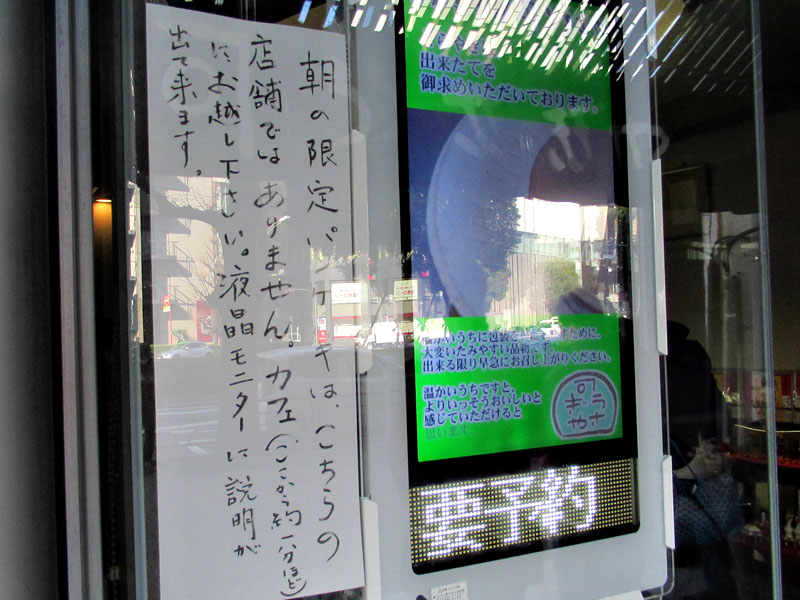 朝の限定パンケーキは、こちらの
店舗ではありません。カフェ(ここから約一分ほど)
にお越し下さい。液晶モニターに説明が
出て来ます。
出来たてを
御求めいただいております。
大変いたみやすい品物です。
出来る限り早急にお召し上がりください。
温かいうちですと、
よりいっそうおいしいと
感じていただけると
思います。
うさぎや
要予約